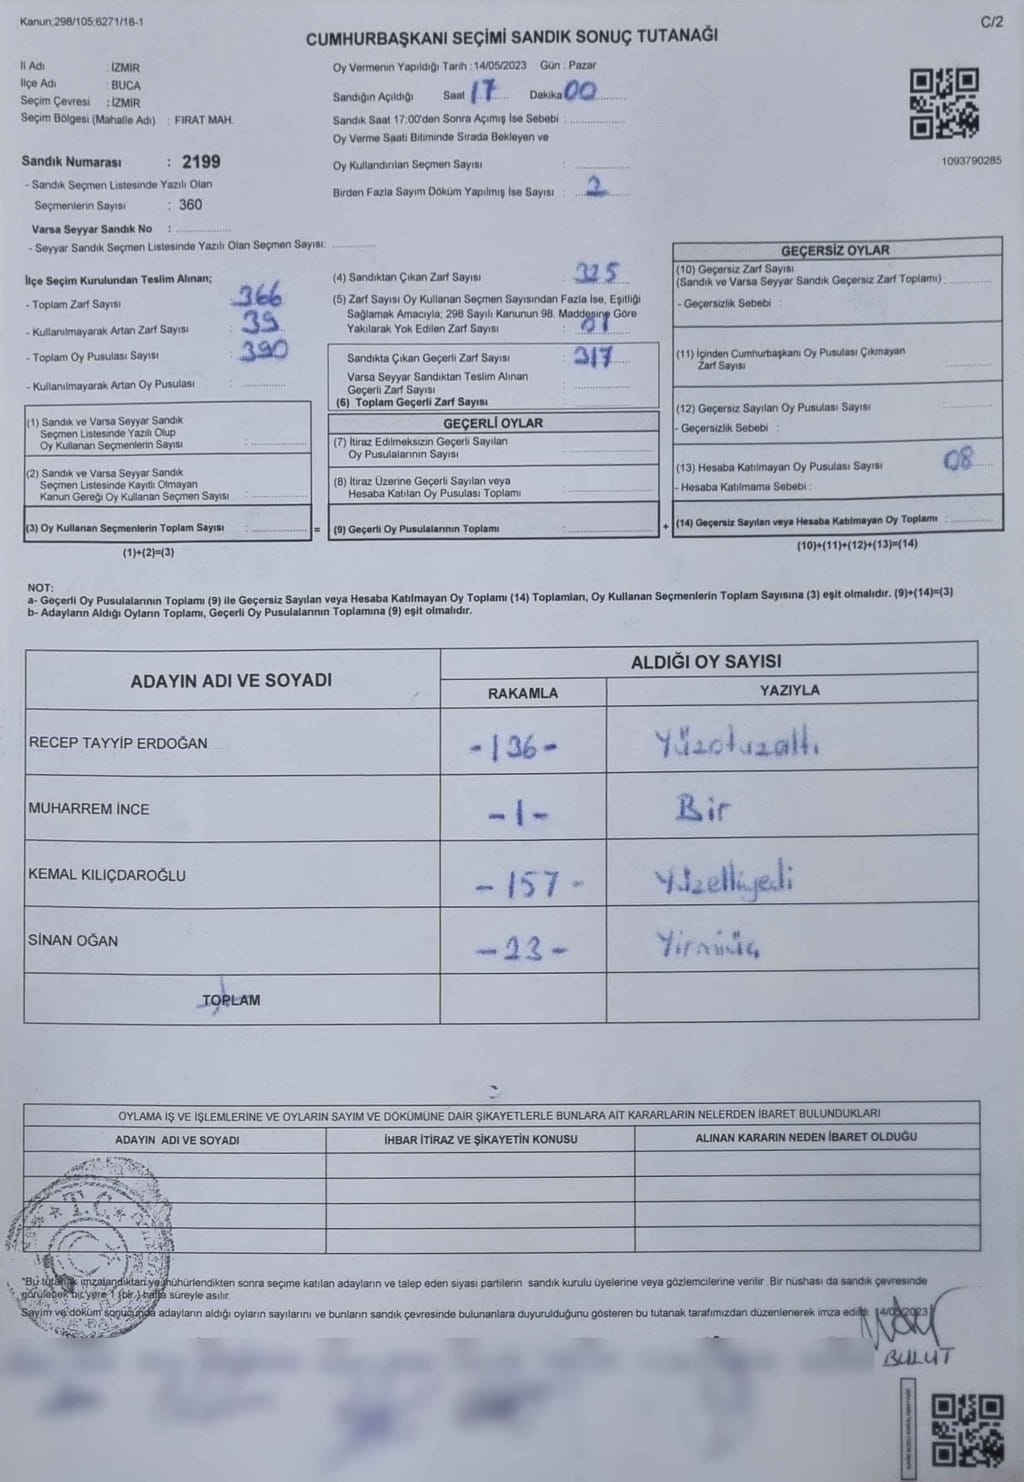 Kanun;298/105;6271/18-1
C/2
CUMHURBAŞKANI SEÇİMİ SANDIK SONUÇ TUTANAĞI
İl Adı : İZMİR
İlçe Adı : BUCA
Seçim Çevresi : İZMİR
Seçim Bölgesi (Mahalle Adı) : FIRAT MAH.
Sandık Numarası : 2199
- Sandık Seçmen Listesinde Yazılı Olan
Seçmenlerin Sayısı : 360
Varsa Seyyar Sandık No : ..................
- Seyyar Sandık Seçmen Listesinde Yazılı Olan Seçmen Sayısı: ..............
Oy Vermenin Yapıldığı Tarih : 14/05/2023 Gün : Pazar
Sandığın Açıldığı Saat 17 Dakika 00
Sandık Saat 17:00'den Sonra Açımış İse Sebebi : ..................
Oy Verme Saati Bitiminde Sırada Bekleyen ve
Oy Kullandırılan Seçmen Sayısı : ..................
Birden Fazla Sayım Döküm Yapılmış İse Sayısı : 2
1093790285
İlçe Seçim Kurulundan Teslim Alınan;
- Toplam Zarf Sayısı : 366
- Kullanılmayarak Artan Zarf Sayısı : 39
- Toplam Oy Pusulası Sayısı : 390
- Kullanılmayarak Artan Oy Pusulası : ..............
(1) Sandık ve Varsa Seyyar Sandık
Seçmen Listesinde Yazılı Olup
Oy Kullanan Seçmenlerin Sayısı : ..............
(2) Sandık ve Varsa Seyyar Sandık
Seçmen Listesinde Kayıtlı Olmayan
Kanun Gereği Oy Kullanan Seçmen Sayısı : ..............
(3) Oy Kullanan Seçmenlerin Toplam Sayısı : .............. =
(1)+(2)=(3)
(4) Sandıktan Çıkan Zarf Sayısı : 325
(5) Zarf Sayısı Oy Kullanan Seçmen Sayısından Fazla İse, Eşitliği
Sağlamak Amacıyla; 298 Sayılı Kanunun 98. Maddesine Göre
Yakılarak Yok Edilen Zarf Sayısı : 01
Sandıkta Çıkan Geçerli Zarf Sayısı : 317
Varsa Seyyar Sandıktan Teslim Alınan
Geçerli Zarf Sayısı : ..................
(6) Toplam Geçerli Zarf Sayısı :
GEÇERLİ OYLAR
(7) İtiraz Edilmeksizin Geçerli Sayılan
Oy Pusulalarının Sayısı : ..................
(8) İtiraz Üzerine Geçerli Sayılan veya
Hesaba Katılan Oy Pusulası Toplamı : ..................
(9) Geçerli Oy Pusulalarının Toplamı : .................. +
GEÇERSİZ OYLAR
(10) Geçersiz Zarf Sayısı
(Sandık ve Varsa Seyyar Sandık Geçersiz Zarf Toplamı) : ..............
- Geçersizlik Sebebi :
(11) İçinden Cumhurbaşkanı Oy Pusulası Çıkmayan
Zarf Sayısı ..............
(12) Geçersiz Sayılan Oy Pusulası Sayısı : ..............
- Geçersizlik Sebebi :
(13) Hesaba Katılmayan Oy Pusulası Sayısı : 08
- Hesaba Katılmama Sebebi :
(14) Geçersiz Sayılan veya Hesaba Katılmayan Oy Toplamı : ..............
(10)+(11)+(12)+(13)=(14)
NOT:
a- Geçerli Oy Pusulalarının Toplamı (9) ile Geçersiz Sayılan veya Hesaba Katılmayan Oy Toplamı (14) Toplamları, Oy Kullanan Seçmenlerin Toplam Sayısına (3) eşit olmalıdır. (9)+(14)=(3)
b- Adayların Aldığı Oyların Toplamı, Geçerli Oy Pusulalarının Toplamına (9) eşit olmalıdır.
ADAYIN ADI VE SOYADI
ALDIĞI OY SAYISI
RAKAMLA YAZIYLA
RECEP TAYYİP ERDOĞAN -136- Yüzotuzaltı
MUHARREM İNCE -1- Bir
KEMAL KILIÇDAROĞLU -157- Yüzelliyedi
SİNAN OĞAN -23- Yirmiüç
TOPLAM
OYLAMA İŞ VE İŞLEMLERİNE VE OYLARIN SAYIM VE DÖKÜMÜNE DAİR ŞİKAYETLERLE BUNLARA AİT KARARLARIN NELERDEN İBARET BULUNDUKLARI
ADAYIN ADI VE SOYADI İHBAR İTİRAZ VE ŞİKAYETİN KONUSU ALINAN KARARIN NEDEN İBARET OLDUĞU
T.C.
"Bu tutanak imzalandıktan ve mühürlendikten sonra seçime katılan adayların ve talep eden siyasi partilerin sandık kurulu üyelerine veya gözlemcilerine verilir .Bir nüshası da sandık çevresinde
görülecek bir yere 1 (bir) hafta süreyle asılır.
Sayım ve döküm sonucunda adayların aldığı oyların sayılarını ve bunların sandık çevresinde bulunanlara duyurulduğunu gösteren bu tutanak tarafımızdan düzenlenerek imza edildi. 14/05/2023
BULUT